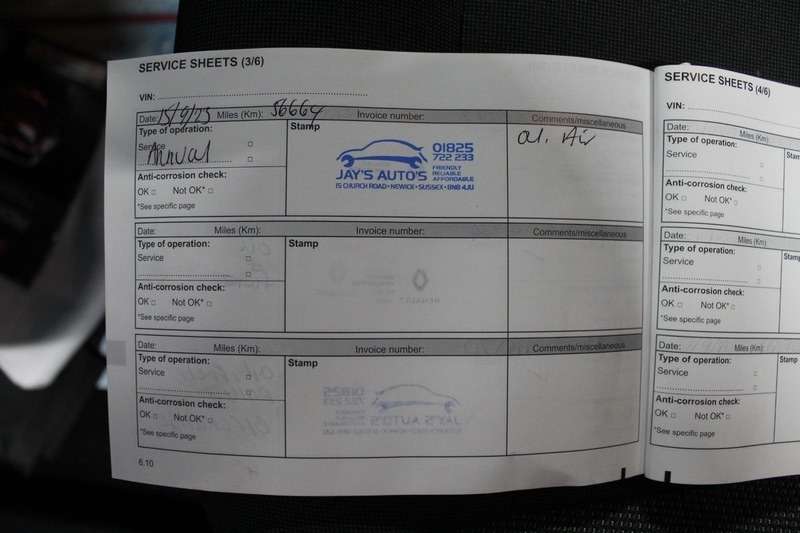 SERVICE SHEETS (3/6)
VIN:
Date: 15/9/23 Miles (Km): 56664 Invoice number: Comments/miscellaneous
Type of operation:
Stamp
Service
Annual
Oil. Air
JAY'S AUTO'S
01825
722 233
FRIENDLY
RELIABLE
AFFORDABLE
15 CHURCH ROAD • NEWICK • SUSSEX • BN8 4JU
Anti-corrosion check:
OK □ Not OK* □
*See specific page
Date: Miles (Km): Invoice number: Comments/miscellaneous
Type of operation:
Stamp
Service
Anti-corrosion check:
OK □ Not OK* □
*See specific page
Date: Miles (Km): Invoice number: Comments/miscellaneous
Type of operation:
Stamp
Service
Anti-corrosion check:
OK □ Not OK* □
*See specific page
6.10
SERVICE SHEETS (4/6)
VIN:
Date: Miles (Km):
Type of operation:
Stamp
Service
Anti-corrosion check:
OK □ Not OK* □
*See specific page
Date: Miles (Km):
Type of operation:
Stam
Service
Anti-corrosion check:
OK □ Not OK* □
*See specific page
Date: Miles (Km):
Type of operation:
Stam
Service
Anti-corrosion check:
OK □ Not OK* □
*See specific page